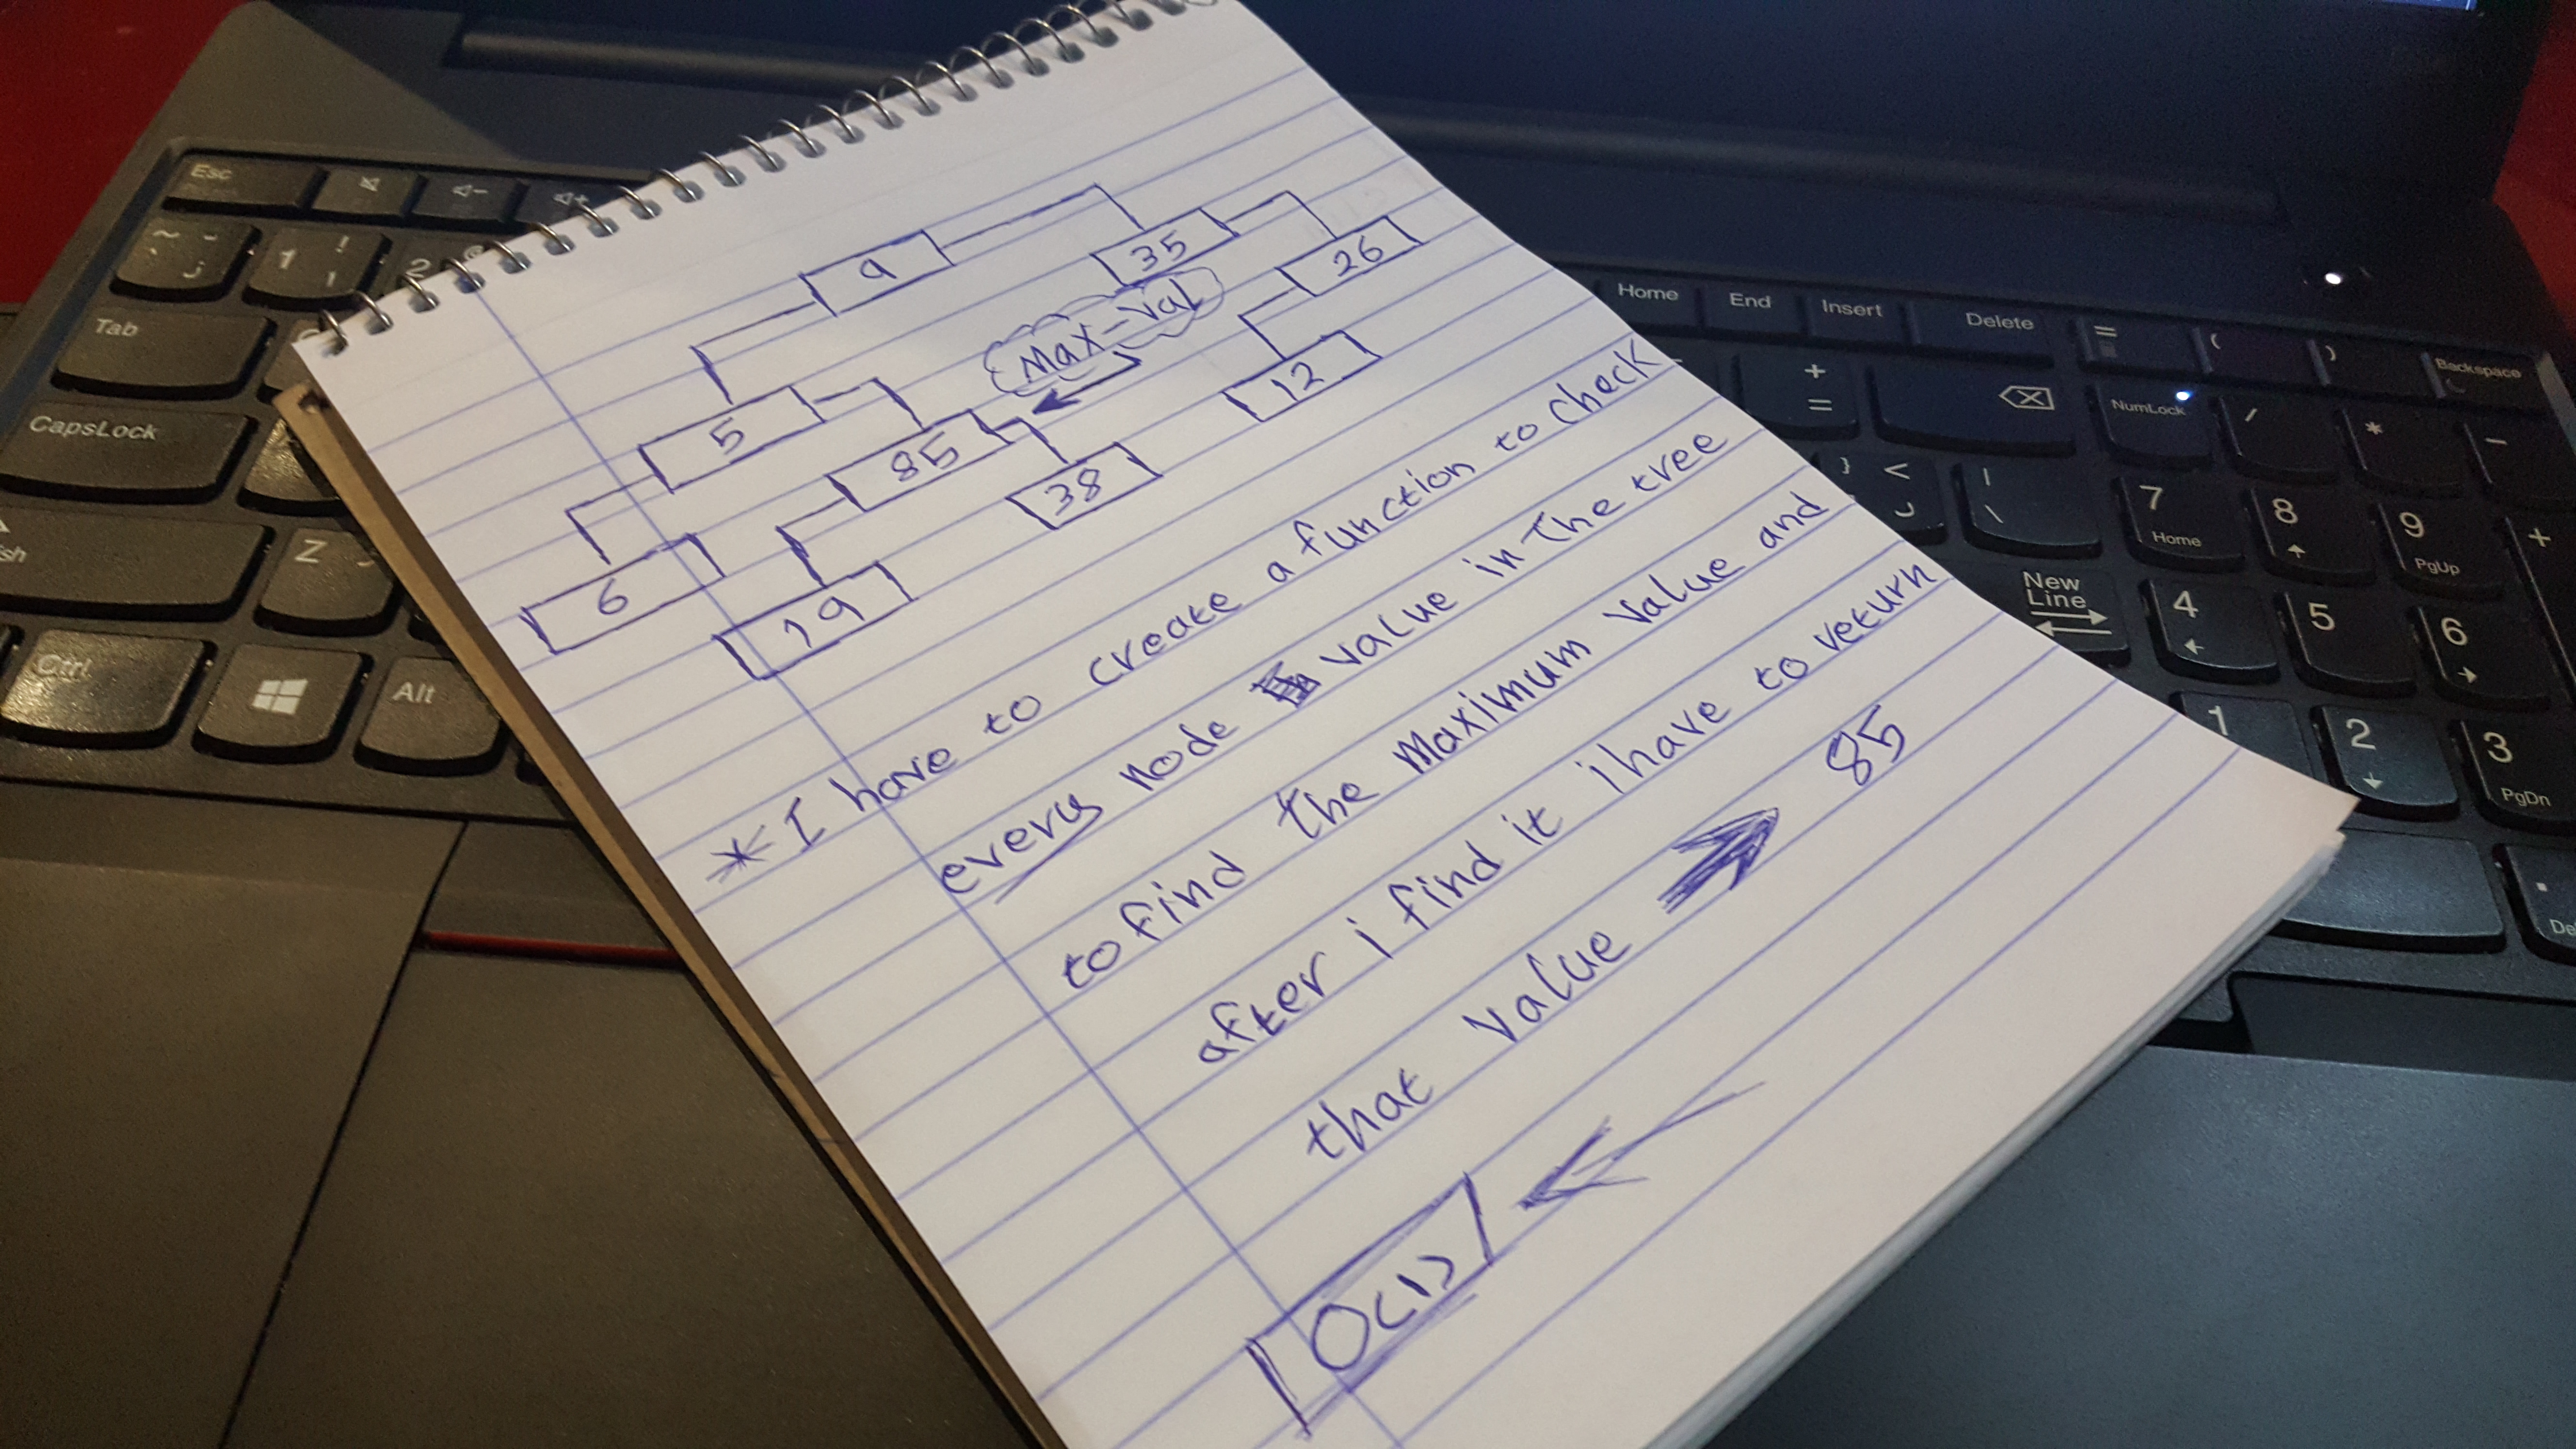 9
35
26
Max-Val
5
85
38
12
6
19
* I have to create a function to check
every node value in The tree
to find the Maximum value and
after i find it i have to return
that value 85
O(1)
Esc
Tab
CapsLock
Z
Ctrl
Alt
Home End Insert Delete
Backspace
NumLock / * -
7 8 9 +
Home PgUp
New
Line
4 5 6
1 2 3
PgDn